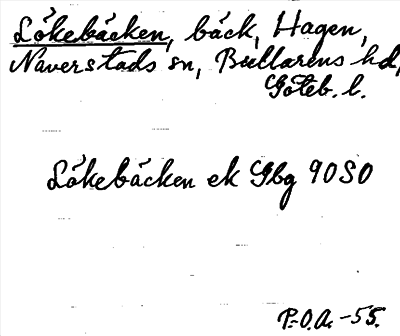 Lökebäcken, bäck, Hagen,
Naverstads sn, Bullarens hd,
Göteb. l.
Lökebäcken ek Gbg 90 SO
P.O.A. -55.